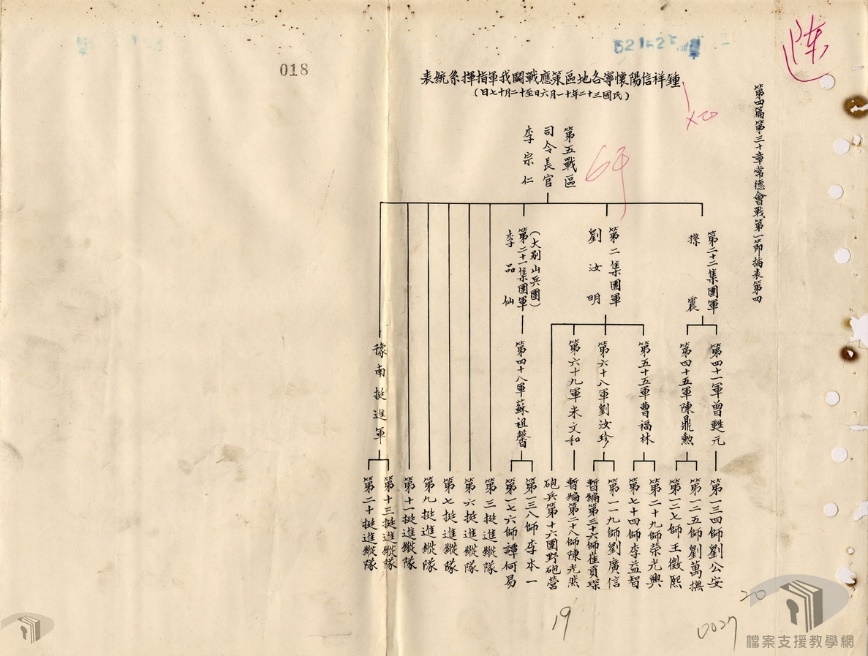 018
第四篇第三十章常德會戰第一節插表第四
鍾祥信陽懷寧各地區策應戰鬪我軍指揮系統表
(民國三十二年十一月六日至十二月十七日)
第五戰區
司令長官
李宗仁
第二十二集團軍
孫震
第四十一軍曾甦元
第一三四師劉公安
第四十五軍陳鼎勲
第一二五師劉萬撫
第一二七師王徵熙
第二集團軍
劉汝明
第五十五軍曹福林
第二十九師榮光興
第七十四師李益智
第六十八軍劉汝珍
第一一九師劉廣信
暫編第三十六師崔貢琛
第六十九軍米文和
暫編第二十八師陳光然
砲兵第十六團野砲營
(大別山兵團)
第二十一集團軍
李品仙
第四十八軍蘇祖馨
第一三八師李本一
第一七六師譚何易
第三挺進縱隊
第六挺進縱隊
第七挺進縱隊
第九挺進縱隊
第十一挺進縱隊
豫南挺進軍
第十三挺進縱隊
第二十挺進縱隊
19
0027
20
檔案支援教學網